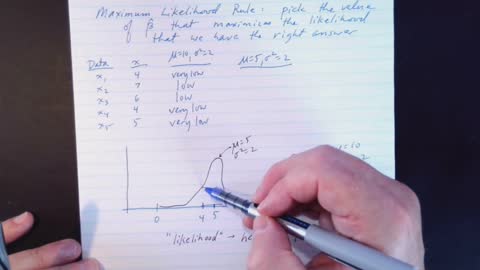 Maximum Likelihood Rule: pick the value
of β̂ that maximizes the likelihood
that we have the right answer
Data x μ=10, σ²=2 μ=5, σ²=2
x₁ 4 very low
x₂ 7 low
x₃ 6 low
x₄ 4 very low
x₅ 5 very low
μ=5
σ²=2
=10
2
0 4 5
"likelihood" → he